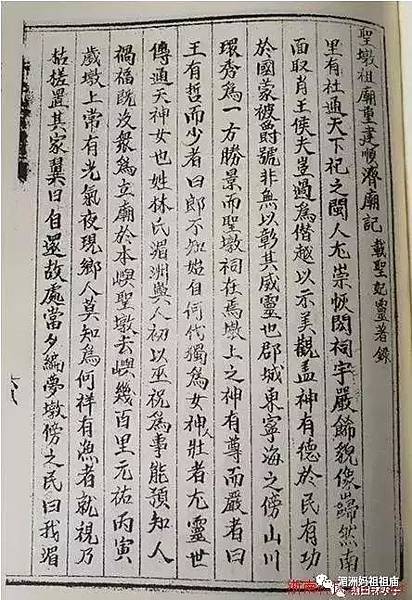 聖墩祖廟重建順濟廟記 載聖妃靈著錄
里有社通天下祀之閩人尤崇恢閎祠宇嚴飾貌像巋然南
面取肖王侯夫豈過為僭越以示美觀盖神有德於民有功
於國蒙被爵號非無以彰其威靈也郡城東寧海之傍山川
環秀為一方勝景而聖墩祠在焉墩上之神有尊而嚴者曰
王有哲而少者曰郎不知始自何代獨為女神人壯者尤靈世
傳通天神女也姓林氏湄洲嶼人初以巫祝為事能預知人
禍福既沒眾為立廟於本嶼聖墩去嶼幾百里元祐丙寅
歲墩上常有光氣夜現鄉人莫知為何祥有漁者就視乃
枯槎置其家翼日自還故處當夕編夢墩傍之民曰我湄
六八
湄洲妈祖祖庙